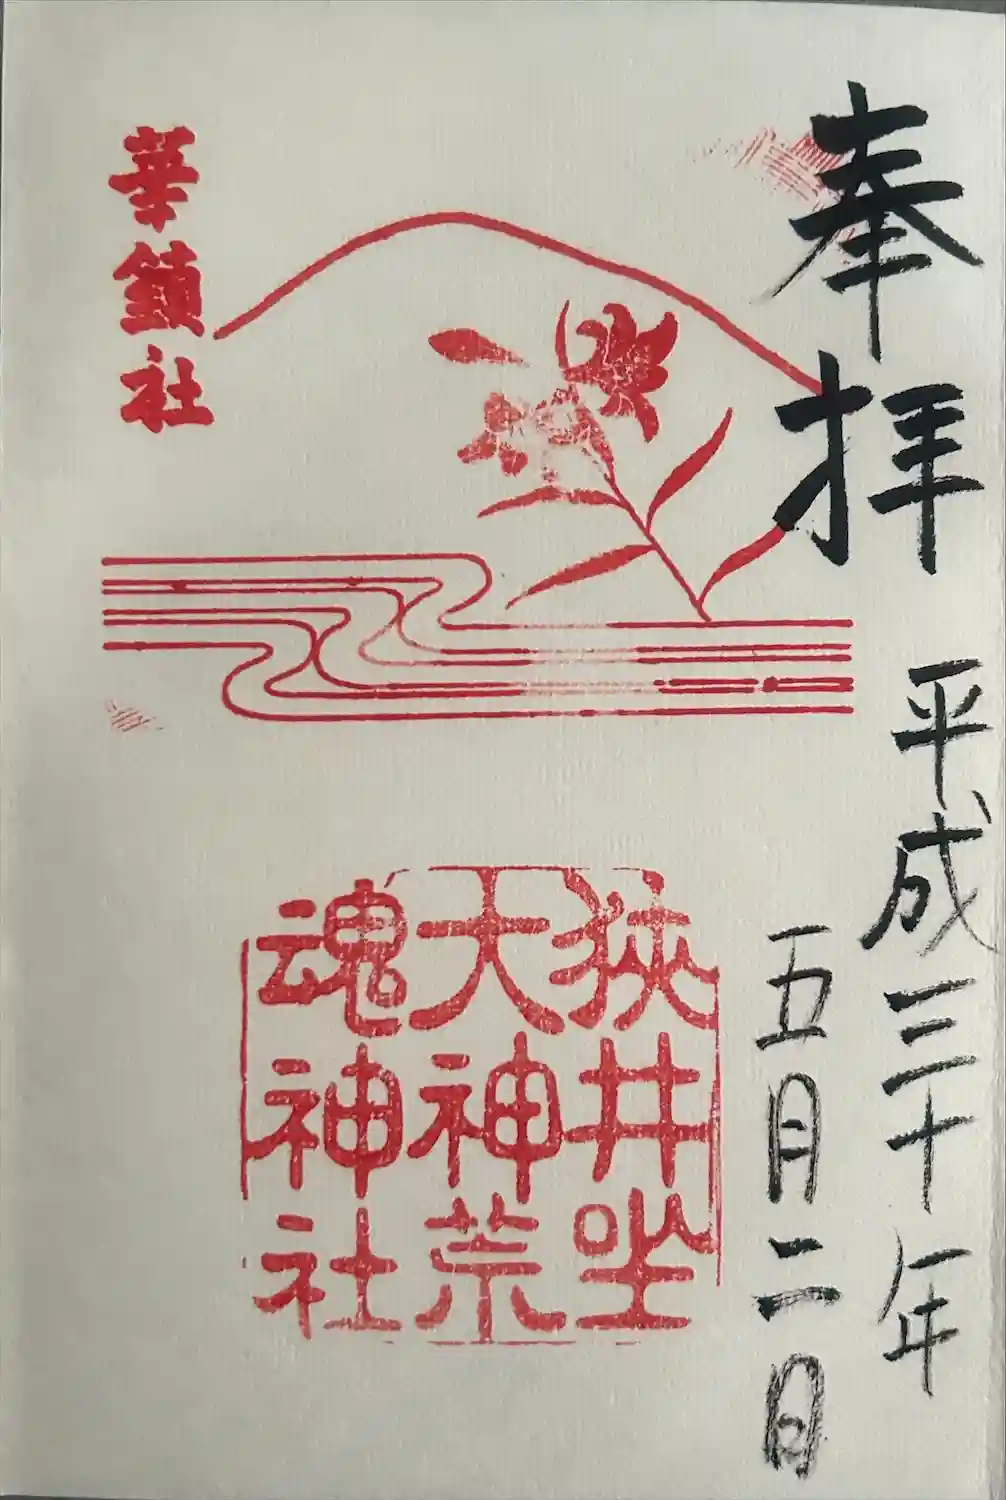 奉拝
平成三十年
五月二日
狭井坐
大神荒
魂神社
華鎮社